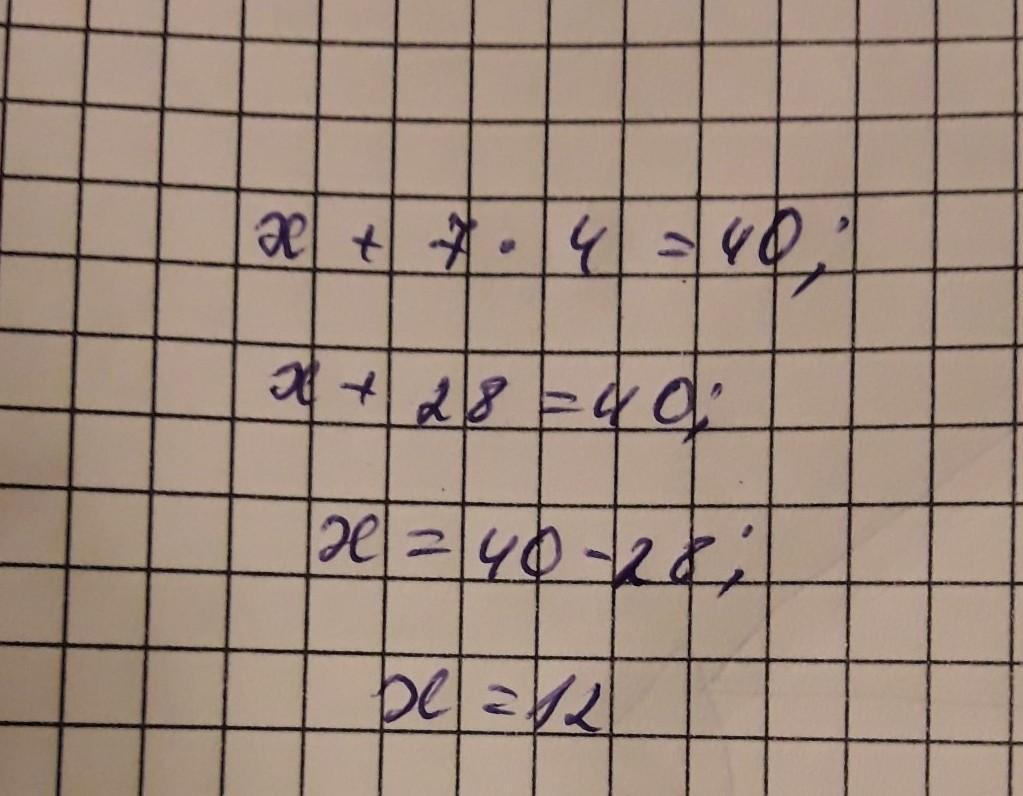 x + 7 · 4 = 40;
x + 28 = 40;
x = 40 - 28;
x = 12